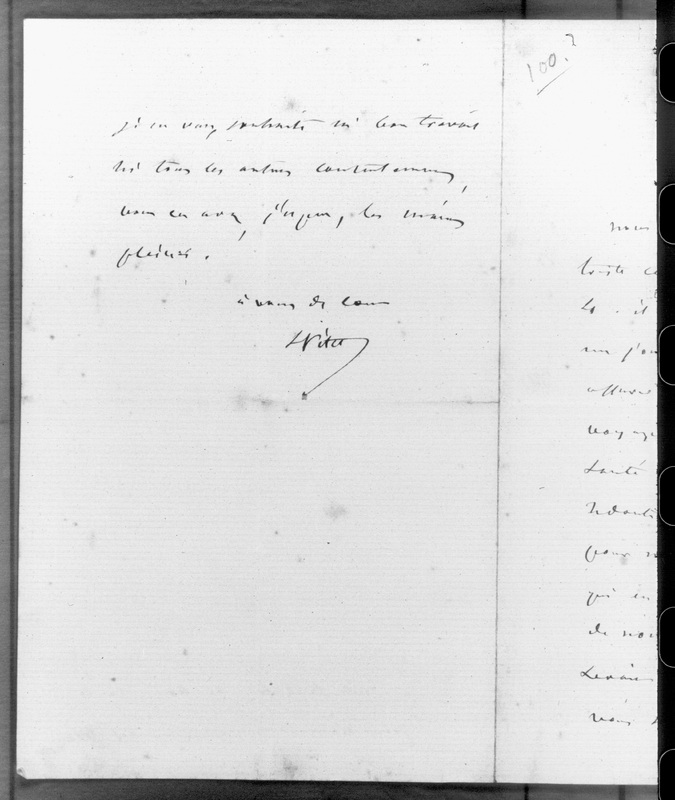 je ne vous souhaite ni bon travail
ni tous les autres contentements,
vous en avez, j'espère, les mains
pleines.
à vous de cœur
L Vitet
100.?
nous
toute
un j'ou
voyage
Santé
pour
qui en
de nou